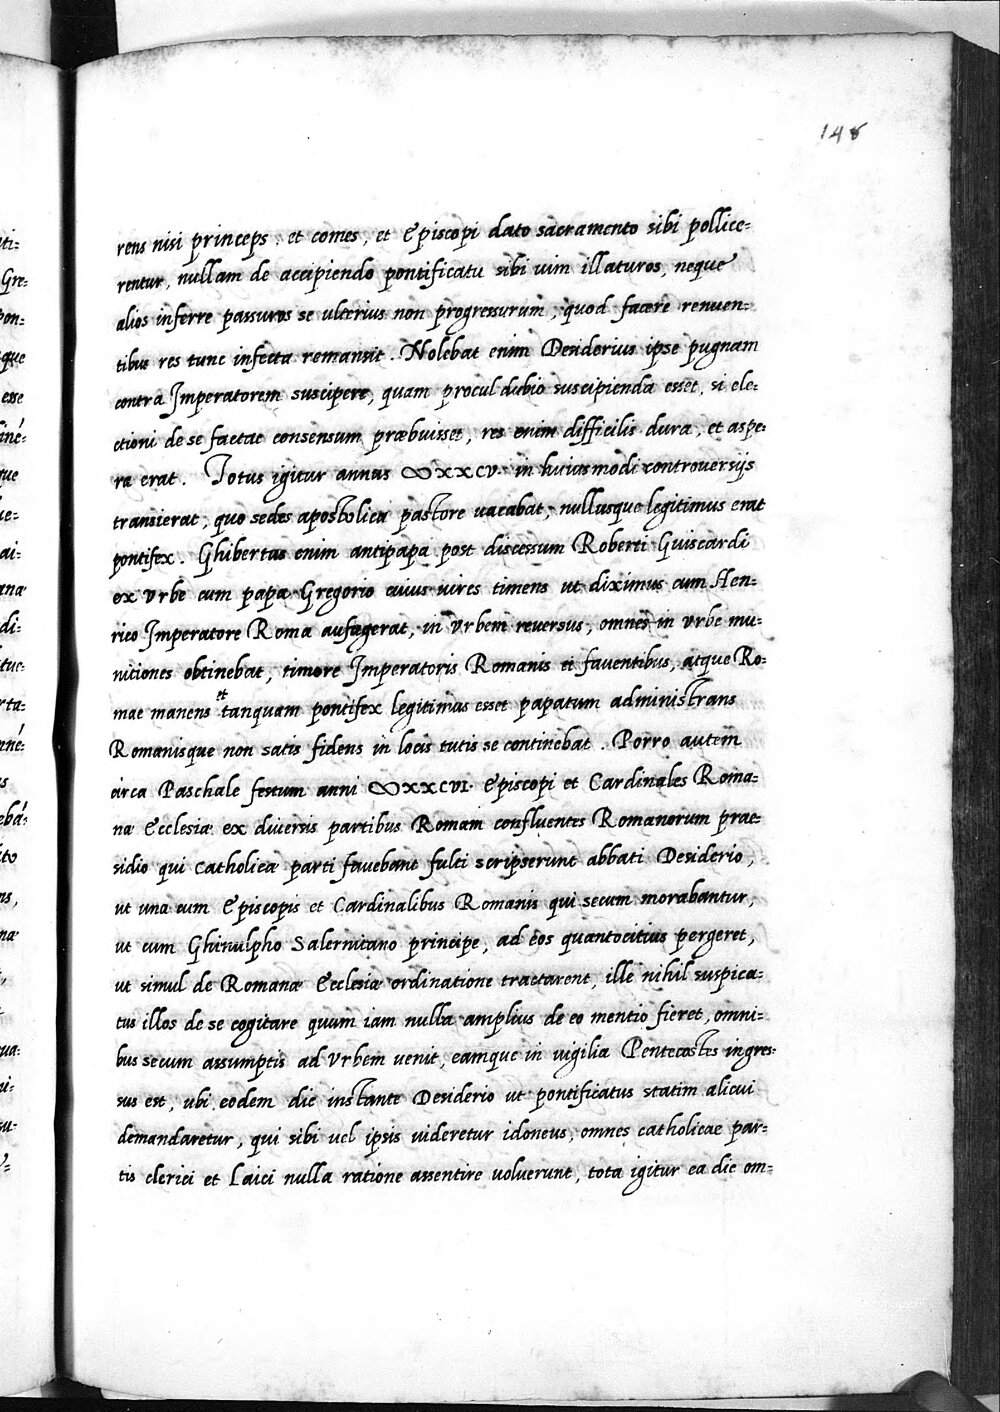 148
rens nisi princeps, et comes, et Episcopi dato sacramento sibi pollice=
rentur, nullam de accipiendo pontificatu sibi uim illaturos, neque
alios inferre passuros se ulterius non progressurum, quod facere renuen=
tibus res tunc infecta remansit. Nolebat enim Desiderius ipse pugnam
contra Imperatorem suscipere, quam procul dubio suscipienda esset, si ele=
ctioni de se factae consensum præbuisset, res enim difficilis dura, et aspe=
ra erat. Totus igitur annus ∞XXCV. in huiusmodi controversijs
transierat, quo sedes apostolica pastore uacabat, nullusque legitimus erat
pontifex. Ghibertus enim antipapa post discessum Roberti Guiscardi
ex Vrbe cum papa Gregorio cuius uires timens ut diximus cum Hen=
rico Imperatore Roma aufugerat, in Vrbem reversus, omnes in Vrbe mu=
nitiones obtinebat, timore Imperatoris Romanis ei faventibus, atque Ro=
mae manens et tanquam pontifex legitimus esset papatum administrans
Romanisque non satis fidens in locis tutis se continebat. Porro autem
circa Paschale festum anni ∞XXCVI. Episcopi et Cardinales Roma=
næ Ecclesiæ ex diuersis partibus Romam confluentes Romanorum prae=
sidio qui catholicæ parti favebant fulti scripserunt abbati Desiderio,
ut una cum Episcopis et Cardinalibus Romanis qui secum morabantur,
ut cum Ghisulpho Salernitano principe, ad eos quantocitius pergeret,
ut simul de Romanæ Ecclesiæ ordinatione tractarent, ille nihil suspica=
tus illos de se cogitare quum iam nulla amplius de eo mentio fieret, omni=
bus secum assumptis ad Vrbem uenit, eamque in uigilia Pentecostes ingres=
sus est, ubi eodem die instante Desiderio ut pontificatus statim alicui
demandaretur, qui sibi uel ipsis uideretur idoneus, omnes catholicae par=
tis clerici et Laici nulla ratione assentire voluerunt, tota igitur ea die om=